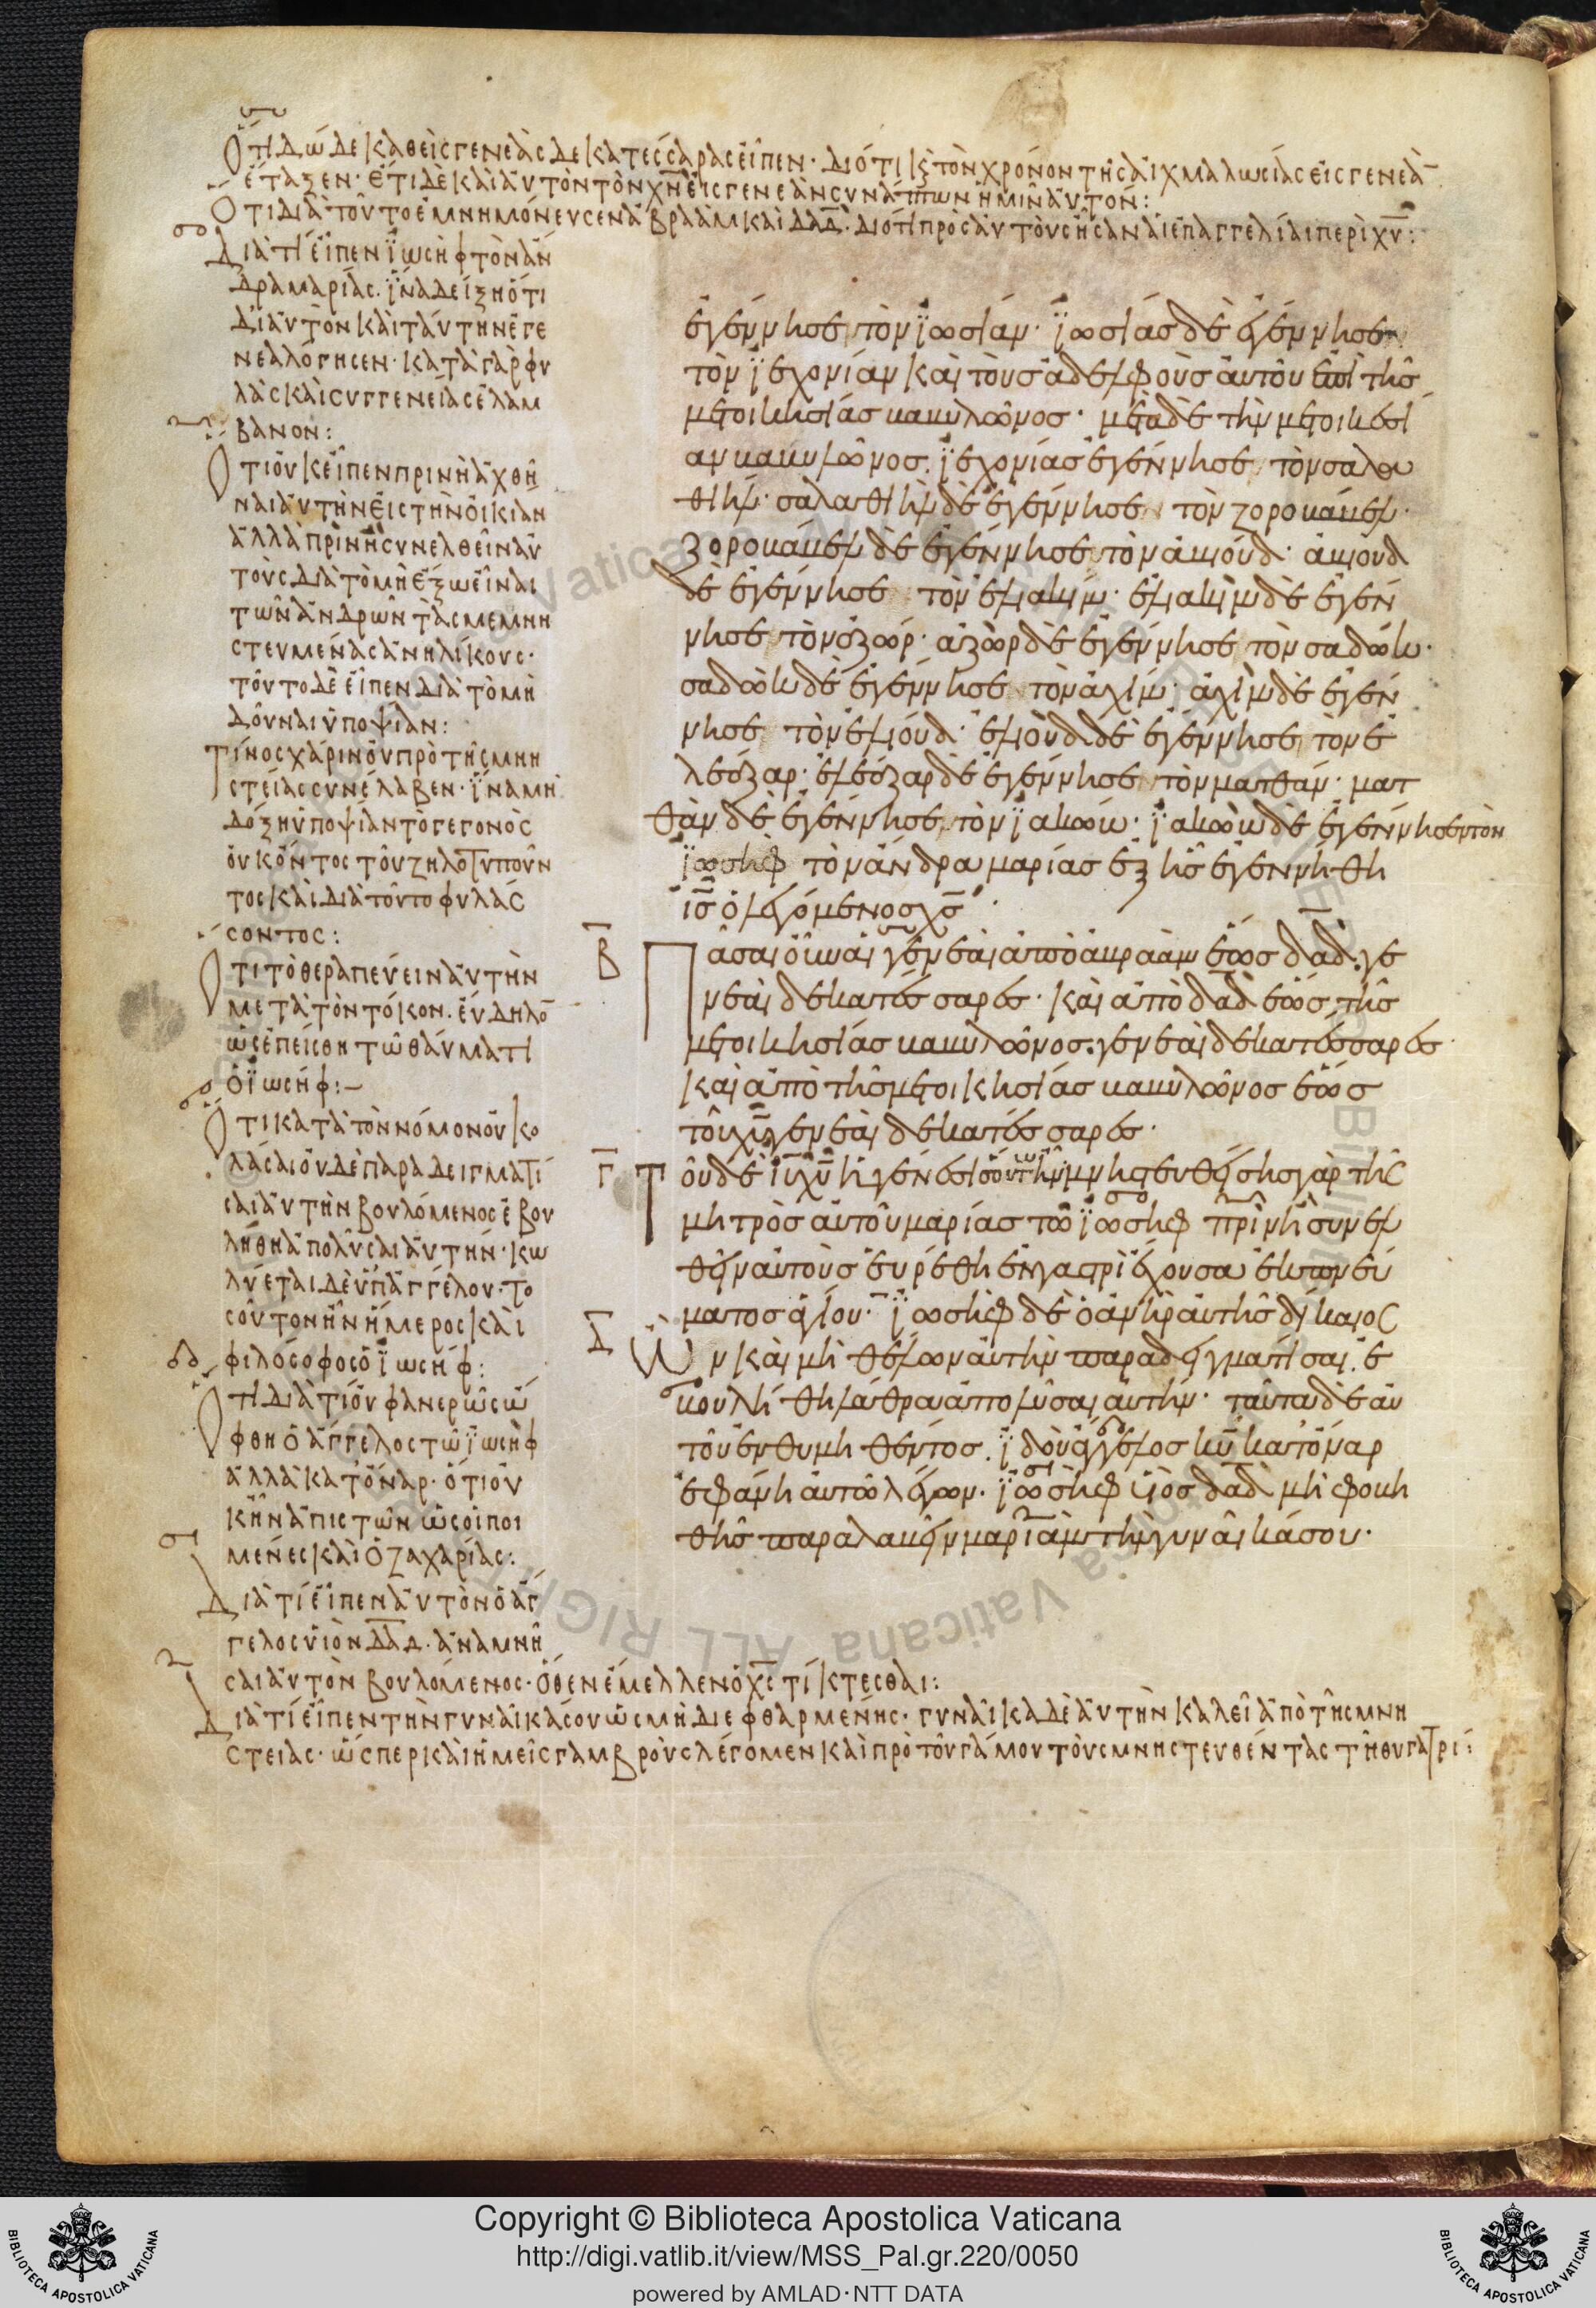 Ὅτι δώδεκα θεὶς γενεὰς δεκατέσσαρας εἶπεν· διότι κ(αὶ) τὸν χρόνον τῆς αἰχμαλωσίας εἰς γενεὰ̅
ἔταξεν· ἔτι δὲ καὶ αὐτὸν τὸν χ̅ν̅ εἰς γενεὰν συνάπτων ἡμῖν αὐτόν:
Ὅτι διὰ τοῦτο ἐμνημόνευσεν ἀβραὰμ καὶ δα̅δ̅· διότι πρὸς αὐτοὺς ἦσαν αἱ ἐπαγγελίαι περὶ χ̅υ̅:
Διὰ τί εἶπεν ἰωσὴφ τὸν ἄν
δρα μαρίας. ἵνα δείξη ὅτι
δι' αὐτὸν καὶ ταύτην ἐγε
νεαλόγησεν· κατὰ γὰρ φυ
λὰς καὶ συγγενείας ἐλάμ
βανον:
Ὅτι οὐκ εἶπεν πρινὴ ἀχθῆ
ναι αὐτὴν εἰς τὴν οἰκίαν
ἀλλὰ πρὶν ἢ συνελθεῖν αὐ
τοὺς διὰ τὸ μὴ ἔξω εἶναι
τῶν ἀνδρῶν τὰς μεμνη
στευμένας ἀνηλίκους·
τοῦτο δὲ εἶπεν διὰ τὸ μὴ
δοῦναι ὑποψίαν:
Τίνος χάριν οὐ πρὸ τῆς μνη
στείας συνέλαβεν· ἵνα μὴ
δόξη ὑποψίαν τὸ γεγονὸς
οὐκ ὄντος τοῦ ζηλοτυποῦν
τος καὶ διὰ τοῦτο φυλάσ
σοντος:
Ὅτι τὸ θεραπεύειν αὐτὴν
μετὰ τὸν τόκον. εὔδηλο̅
ὡς ἐπείσθη τῶ θαύματι
ὁ ἰωσήφ:
Ὅτι κατὰ τὸν νόμον οὐ κο
λάσαι οὐδὲ παραδειγματί
σαι αὐτὴν βουλόμενος ἐβου
λήθη ἀπολῦσαι αὐτήν· κω
λύεται δὲ ὑπ' ἀγγέλου· το
σοῦτον ἦν ἥμερος καὶ
φιλόσοφος ὁ ἰωσήφ:
Ὅτι διὰ τί οὐ φανερῶς ὤ
φθη ὁ ἄγγελος τῶ ἰωσὴφ
ἀλλὰ κατ' ὄναρ· ὅτι οὐ
κ ἦν ἄπιστων ὡς οἱ ποι
μένες καὶ ὁ ζαχαρίας:
Διὰ τί εἶπεν αὐτὸν ὁ ἄγ
γελος υἱὸν δα̅δ̅. ἀναμνῆ
σαι αὐτὸν βουλόμενος· ὅθεν ἔμελλεν ὁ χ̅ς̅ τίκτεσθαι:
Διὰ τί εἶπεν τὴν γυναῖκά σου ὡς μὴ διεφθαρμένης· γυναῖκα δὲ αὐτὴν καλεῖ ἀπὸ τῆς μνη
στειας· ὥσπερ καὶ ἡμεῖς γαμβροὺς λέγομεν καὶ πρὸ τοῦ γάμου τοὺς μνηστευθέντας τῆ θυγατρί:
ἐγέννησε τὸν ἰωσίαν· ἰωσίας δὲ ἐγέννησεν
τὸν ἰεχονίαν καὶ τοὺς ἀδελφοὺς αὐτοῦ ἐπὶ τῆς
μετοικησίας βαβυλῶνος· μετὰ δὲ τὴν μετοικεσί
αν βαβυλῶνος. ἰεχονίας ἐγέννησε τὸν σαλα
θιήλ· σαλαθιὴλ δὲ ἐγέννησε τὸν ζοροβάβελ·
ζοροβάβελ δὲ ἐγέννησε τὸν ἀβιούδ· ἀβιοὺδ
δὲ ἐγέννησε τὸν ἐλιακίμ· ἐλιακὶμ δὲ ἐγέν
νησε τὸν ἀζώρ· ἀζὼρ δὲ ἐγέννησε τὸν σαδώκ·
σαδὼκ δὲ ἐγέννησε τὸν ἀχίμ· ἀχὶμ δὲ ἐγέν
νησε τὸν ἐλιούδ· ἐλιοὺδ δὲ ἐγέννησε τὸν ἐ
λεάζαρ· ἐλεάζαρ δὲ ἐγέννησε τὸν ματθάν· ματ
θὰν δὲ ἐγέννησε τὸν ἰακώβ· ἰακὼβ δὲ ἐγέννησεν τὸν
ἰωσὴφ τὸν ἄνδρα μαρίας ἐξ ἧς ἐγεννήθη
ι̅ς̅ ὁ λεγόμενος χ̅ς̅·
Β Πᾶσαι οὖν αἱ γενεαὶ ἀπὸ ἀβραὰμ ἕως δα̅δ̅. γε
νεαὶ δεκατέσσαρες· καὶ ἀπὸ δα̅δ̅ ἕως τῆς
μετοικησίας βαβυλῶνος. γενεαὶ δεκατέσσαρες·
καὶ ἀπὸ τῆς μετοικησίας βαβυλῶνος ἕως
τοῦ χ̅υ̅ γενεαὶ δεκατέσσαρες·
Γ Τοῦ δὲ ι̅υ̅ χ̅υ̅ ἡ γένεσις οὕτως ἦν μνηστευθείσης γὰρ τῆς
μητρὸς αὐτοῦ μαρίας τῶ ἰωσὴφ πρὶν ἢ συνελ
θεῖν αὐτοὺς εὑρέθη ἐν γαστρὶ ἔχουσα ἐκ πνεύ
ματος ἁγίου· ἰωσὴφ δὲ ὁ ἀνὴρ αὐτῆς δίκαιος
Δ ὢν καὶ μὴ θέλων αὐτὴν παραδειγματίσαι. ἐ
βουλήθη λάθρα ἀπολῦσαι αὐτήν· ταῦτα δὲ αὐ
τοῦ ἐνθυμηθέντος. ἰδοὺ ἄγγελος κ̅υ̅ κατ' ὄναρ
ἐφάνη αὐτῶ λέγων· ἰωσὴφ υἱὸς δα̅δ̅ μὴ φοβη
θῆς παραλαβεῖν μαριὰμ τὴν γυναῖκά σου·
Copyright © Biblioteca Apostolica Vaticana
http://digi.vatlib.it/view/MSS_Pal.gr.220/0050
powered by AMLAD·NTT DATA
BIBLIOTECA APOSTOLICA VATICANA
BIBLIOTECA APOSTOLICA VATICANA